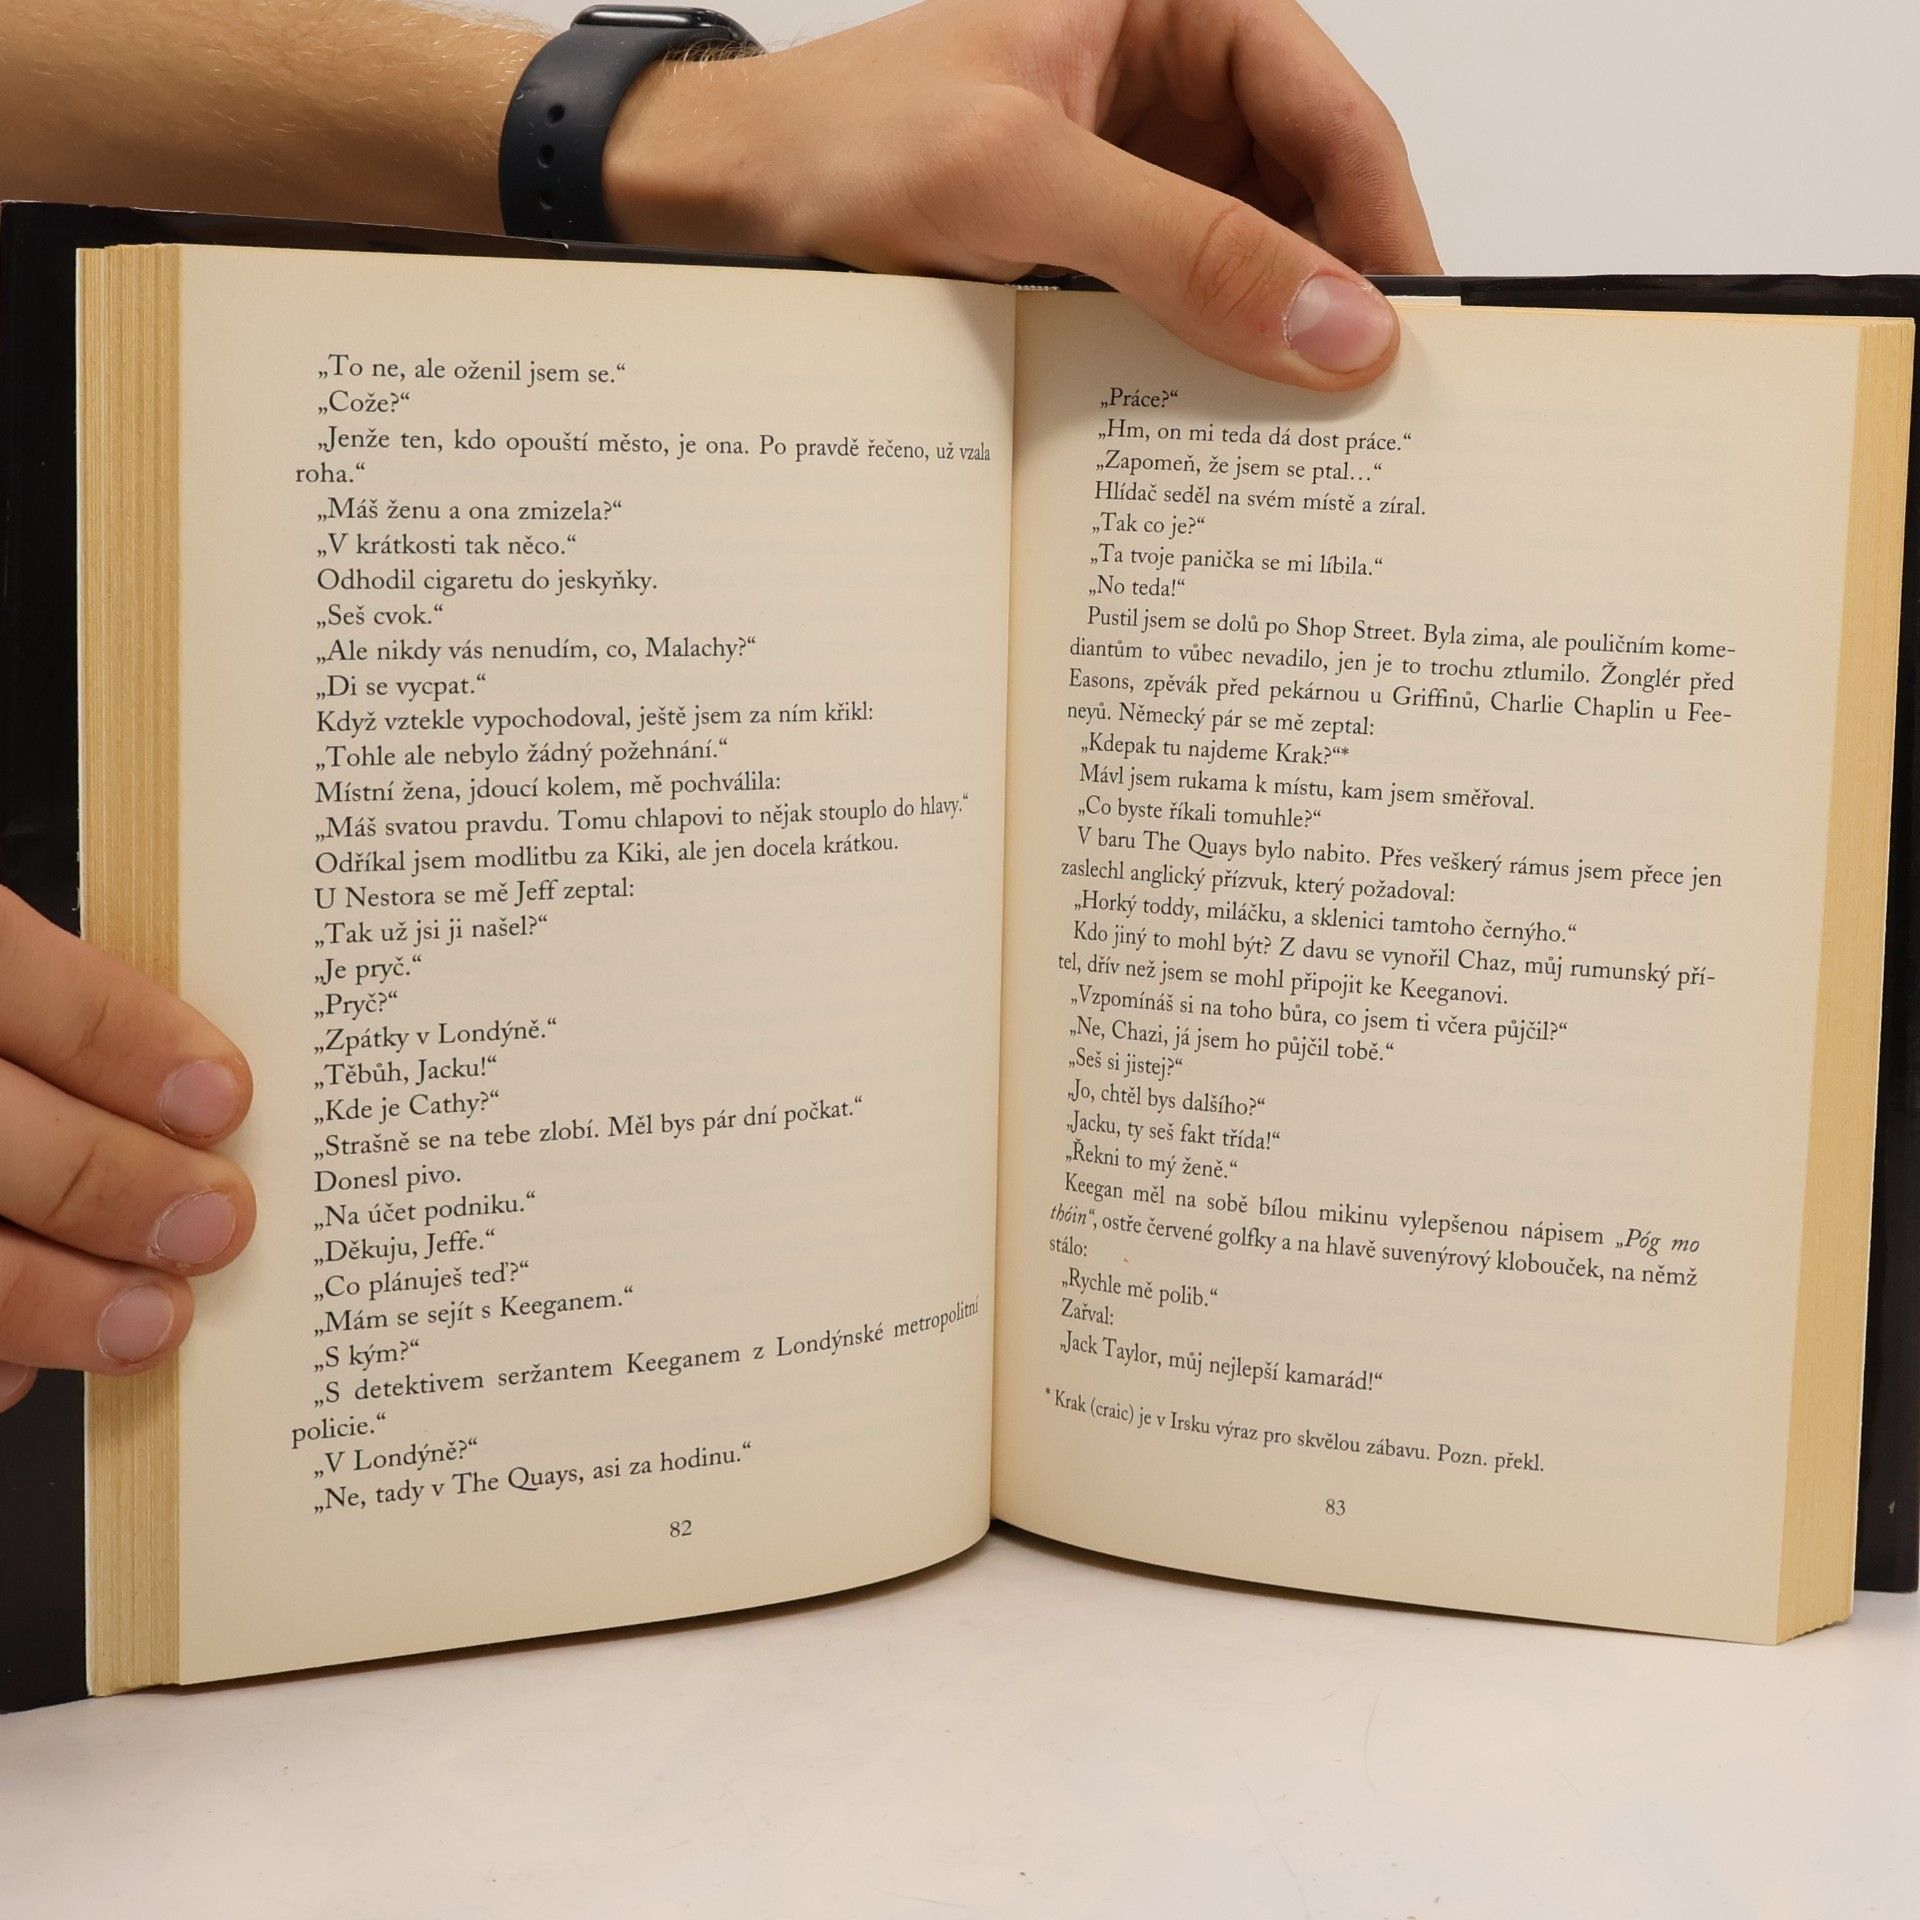 „To ne, ale oženil jsem se.“
„Cože?“
„Jenže ten, kdo opouští město, je ona. Po pravdě řečeno, už vzala
roha.“
„Máš ženu a ona zmizela?“
„V krátkosti tak něco.“
Odhodil cigaretu do jeskyňky.
„Seš cvok.“
„Ale nikdy vás nenudím, co, Malachy?“
„Di se vycpat.“
Když vztekle vypochodoval, ještě jsem za ním křikl:
„Tohle ale nebylo žádný požehnání.“
Místní žena, jdoucí kolem, mě pochválila:
„Máš svatou pravdu. Tomu chlapovi to nějak stouplo do hlavy.“
Odříkal jsem modlitbu za Kiki, ale jen docela krátkou.
U Nestora se mě Jeff zeptal:
„Tak už jsi ji našel?“
„Je pryč.“
„Pryč?“
„Zpátky v Londýně.“
„Těbůh, Jacku!“
„Kde je Cathy?“
„Strašně se na tebe zlobí. Měl bys pár dní počkat.“
Donesl pivo.
„Na účet podniku.“
„Děkuju, Jeffe.“
„Co plánuješ teď?“
„Mám se sejít s Keeganem.“
„S kým?“
„S detektivem seržantem Keeganem z Londýnské metropolitní
policie.“
„V Londýně?“
„Ne, tady v The Quays, asi za hodinu.“
82
„Práce?“
„Hm, on mi teda dá dost práce.“
„Zapomeň, že jsem se ptal…“
Hlídač seděl na svém místě a zíral.
„Tak co je?“
„Ta tvoje panička se mi líbila.“
„No teda!“
Pustil jsem se dolů po Shop Street. Byla zima, ale pouličním kome-
diantům to vůbec nevadilo, jen je to trochu ztlumilo. Žonglér před
Easons, zpěvák před pekárnou u Griffinů, Charlie Chaplin u Fee-
neyů. Německý pár se mě zeptal:
„Kdepak tu najdeme Krak?“*
Mávl jsem rukama k místu, kam jsem směřoval.
„Co byste říkali tomuhle?“
V baru The Quays bylo nabito. Přes veškerý rámus jsem přece jen
zaslechl anglický přízvuk, který požadoval:
„Horký toddy, miláčku, a sklenici tamtoho černýho.“
Kdo jiný to mohl být? Z davu se vynořil Chaz, můj rumunský pří-
tel, dřív než jsem se mohl připojit ke Keeganovi.
„Vzpomínáš si na toho bůra, co jsem ti včera půjčil?“
„Ne, Chazi, já jsem ho půjčil tobě.“
„Seš si jistej?“
„Jo, chtěl bys dalšího?“
„Jacku, ty seš fakt třída!“
„Řekni to mý ženě.“
Keegan měl na sobě bílou mikinu vylepšenou nápisem „Póg mo
thóin“, ostře červené golfky a na hlavě suvenýrový klobouček, na němž
stálo:
„Rychle mě polib.“
Zařval:
„Jack Taylor, můj nejlepší kamarád!“
* Krak (craic) je v Irsku výraz pro skvělou zábavu. Pozn. překl.
83